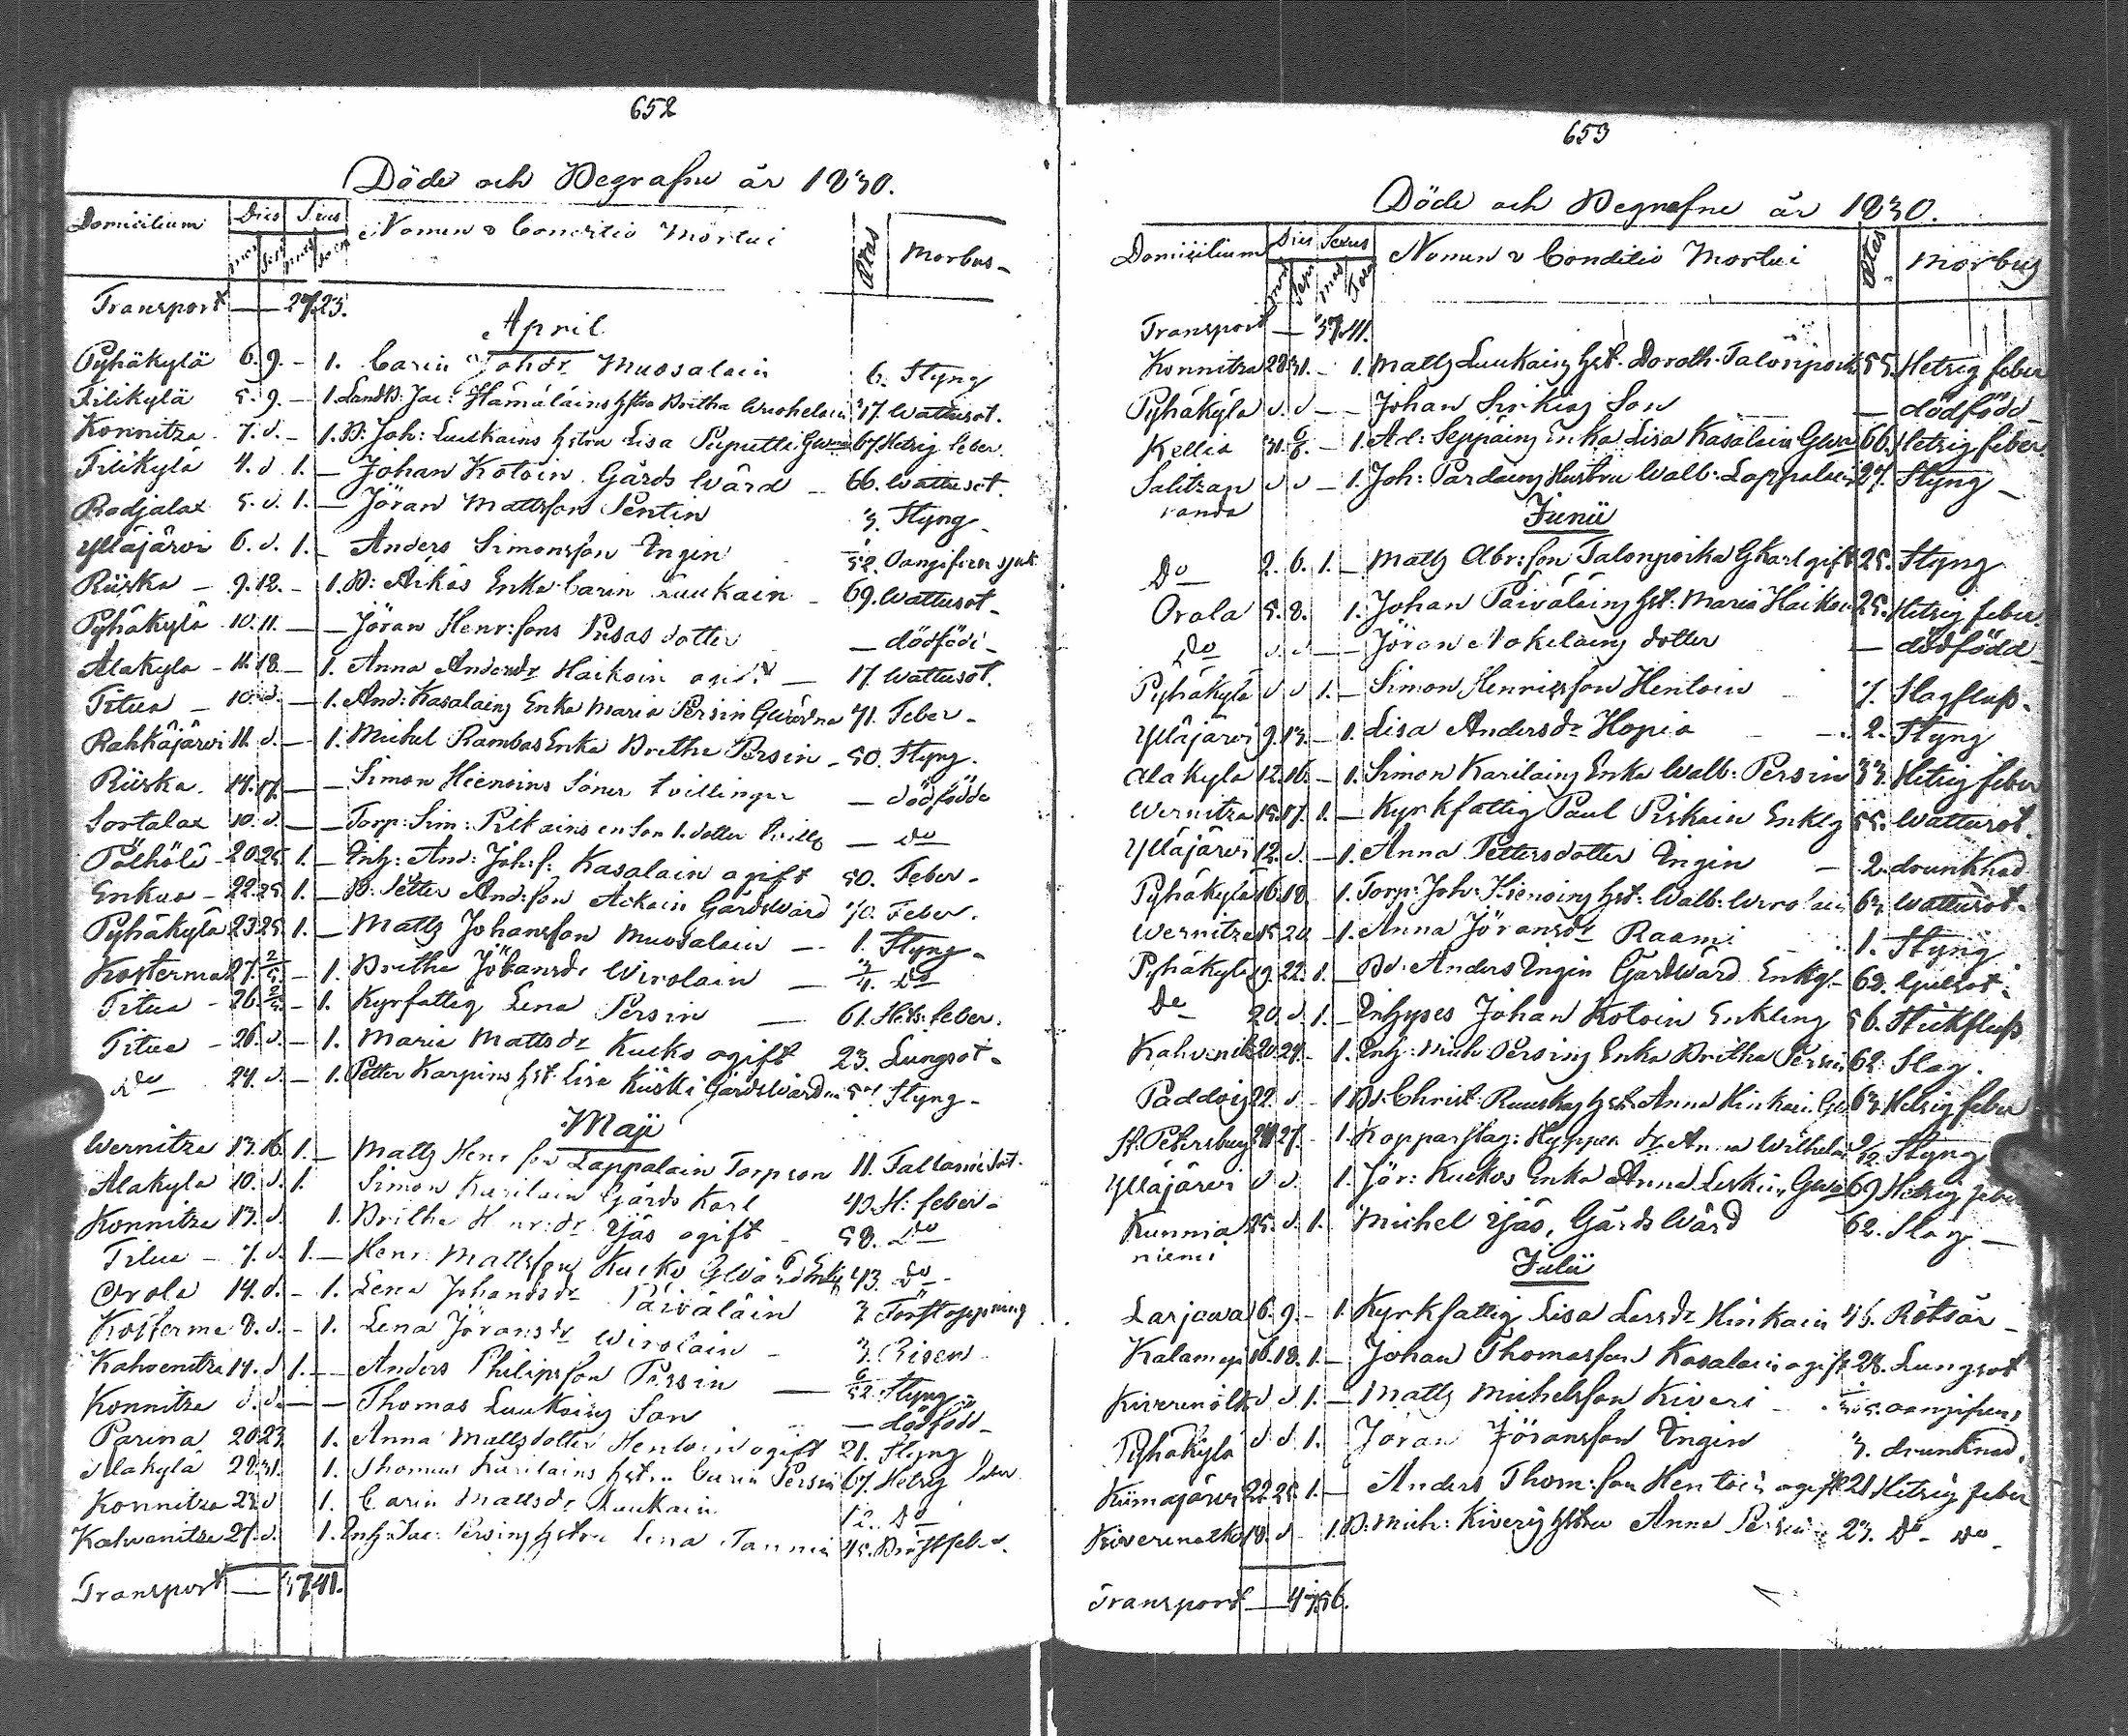 652
Döde och Begrafne år 1830.
Domicilium Dies Sexus Nomen & Conditio Mortui ætas Morbus
mort sep mas foem
Transport — 27. 23.
April
Pyhäkylä 6. 9. – 1. Carin Johdr Muosalain 6. Styng
Filikylä 5. 9. – 1. Landb: Jac: Hämäläins hstru Britha Wuohelain 47. Wattusot.
Konnitza 7. d. – 1. B: Joh: Luukains hstru Lisa Peiputti Gwna 67 Hetsig feber.
Filikylä 4. d. 1. – Johan Kotoin Gårds Wärd – 66. Wattusot.
Rodjalax 5. d. 1. – Jöran Mattsson Pentin 3. Styng –
Ylläjärvi 6. d. 1. – Anders Simonsson Ingin 1/52. Oangifven sjuk
Riiska – 9. 12. – 1. B: Äikäs Enka Carin Luukain – 69. Wattusot –
Pyhäkylä 10. 11. – – Jöran Henr:sons Pusas dotter – dödfödd –
Alakylä – 11. 18. – 1. Anna Andersdr Haikoin ogift – 17. Wattusot.
Titua – 10. d. – 1. And: Kasalains Enka Maria Persin Gwärdna 71. Feber –
Rahkajärvi 11. d. – 1. Michel Rambas Enka Britha Persin – 50. Styng.
Riiska. 14. 17. – – Simon Hienoins Söner tvillingar – dödfödde
Sortalax 10. d. – – Torp: Sim: Pilkains en Son 1. dotter Twill – do
Pölhölä – 20. 25. 1. – Inh: And: Joh:s: Kasalain ogift 50. Feber –
Enkua – 22. 25. 1. – B: Petter And:son Ackain Gårdswärd 70. Feber.
Pyhäkylä 23. 25. 1. – Matts Johansson Muosalain – 1. Styng –
Kosterma 27. 2/5. – 1. Britha Johansdr Wirolain – 3/4. do
Titua – 26. 2/5. – 1. Kyrfattig Lena Persin – 61. Hets: feber.
Titua – 26. d. – 1. Maria Mattsdr Kucko ogift 23. Lungsot –
do 24. d. – 1. Petter Karpins hst. Lisa Kiiski Gårdswärdna Styng –
Maji
Wernitza 13. 16. 1. – Matts Henr:son Lappalain Torpson 11. Fallande Sot.
Alakylä 10. d. 1. Simon Karilain Gårds Karl 40. H: feber –
Konnitza 13. d. 1. Britha Henr:dr Yjäs ogift – 58. do
Titua – 7. d. 1. – Henr: Mattsson Kucko GWärd Enkl 43. do –
Orola 14. d. – 1. Lena Johansdr Päivälain 3. Förstoppning
Kosterma 8. d. – 1. Lena Jöransdr Wirolain – 3. Risen
Kahvenitza 14. d. 1. – – Anders Philipsson Persin – 6/52. Styng
Konnitza d. d. – – Thomas Luukains Son – dödfödd –
Parina 20 23. 1. Anna Mattsdotter Hentoin ogift 21. Styng
Alakylä 28. 31. 1. Thomas Karilains hstru Carin Persin 67. Hetsig feber
Konnitza 23. d 1. Carin Mattsdr Luukain 12. do
Kahvenitza 27. d. 1. Inh: Jac: Persins hstru Lena Tannia 45. Bröstfeber.
Transport — 37. 41.
653
Döde och Begrafne år 1830.
Domicilium Dies Sexus Nomen & Conditio Mortui ætas morbus
Transport — 37. 41.
Konnitza 28 31. – 1. Matts Luukains hst. Doroth. Talonpoik 55. Hetsig feber
Pyhäkylä d. d – – Johan Sirkias Son — dödfödd –
Kellia 31. 6/6. – 1. Ad: Seppäins Enka Lisa Kasalain Gwa 66. Hetsig feber.
Salitzan d d – 1. Joh: Pardains Hustru Walb: Lappalain 27. Styng –
randa
Junii
Do 2. 6. 1. – Matts Abr:son Talonpoika Gkarl gift 25. Styng
Orala 5. 8. 1. Johan Päiväläins hst: Maria Haikoi 25. Hetsig feber.
do d. d. – – Jöran Nokelains dotter – dödfödd –
Pyhäkylä d d 1. – Simon Henriksson Hentoin 7. Slagfluss.
Ylläjärvi 9. 13. – 1. Lisa Andersdr Hopia – – 2. Styng
Alakyla 12. 16. – 1. Simon Karilains Enka Walb: Persin 33. Hetsig feber
Wernitza 15. 17. 1. – Kyrkfattig Paul Piskain Enklg 55. Wattusot.
Ylläjärvi 12. d. – 1. Anna Pettersdotter Ingin – 2. drunknad
Pyhäkylä 16. 18. 1. Torp: Joh: Hienoins hst: Walb: Wirolain 63. Wattusot –
Wernitza 15 20 – 1. Anna Jöransdr Raami 1. Styng
Pyhäkylä 19. 22. 1. – Bd: Anders Ingin Gårdwärd Enkg – 62. Gulsot.
Do 20. d. 1. – Inhyses Johan Kotoin Enkling 56. Stickfluss
Kahvenitz 20. 24. – 1. Inh: Mich: Persins Enka Britha Persin 62. Slag.
Paddois 22. d. – 1. Bd. Christ: Ruuskas hst. Anna Hinkain Gw 63. Hetsig feber
St. Petersburg 24 27. – 1. Kopparslag: Hyppen dr Anna Wilhelm 2/52. Styng
Ylläjärvi d d. 1. Jör: Kuckos Enka Anna Leskin, Gwa 69. Hetsig feber
Kunnia 25. d. 1. Michel Yjäs, Gårds Wärd 62. Slag. –
niemi
Julii
Larjawa 6. 9. – 1. Kyrkfattig Lisa Larsdr Hinkain 45. Rötsår –
Kalamaja 16. 18. 1. – Johan Thomasson Kasalain ogift 28. Lungsot
Kiverinolk d d 1. – Matts Michelsson Kiveri – oangifven
Pyhäkylä d d. 1. Jöran Jöransson Ingin 3. drunknad.
Kiimajärvi 22. 25. 1. – Anders Thom:son Hentoin ogift 21 Hetsig feber
Kiverinotko 18. d – 1. B: Mich: Kiveris hstru Anna Persin 23. Do – do –
Transport — 47. 56.